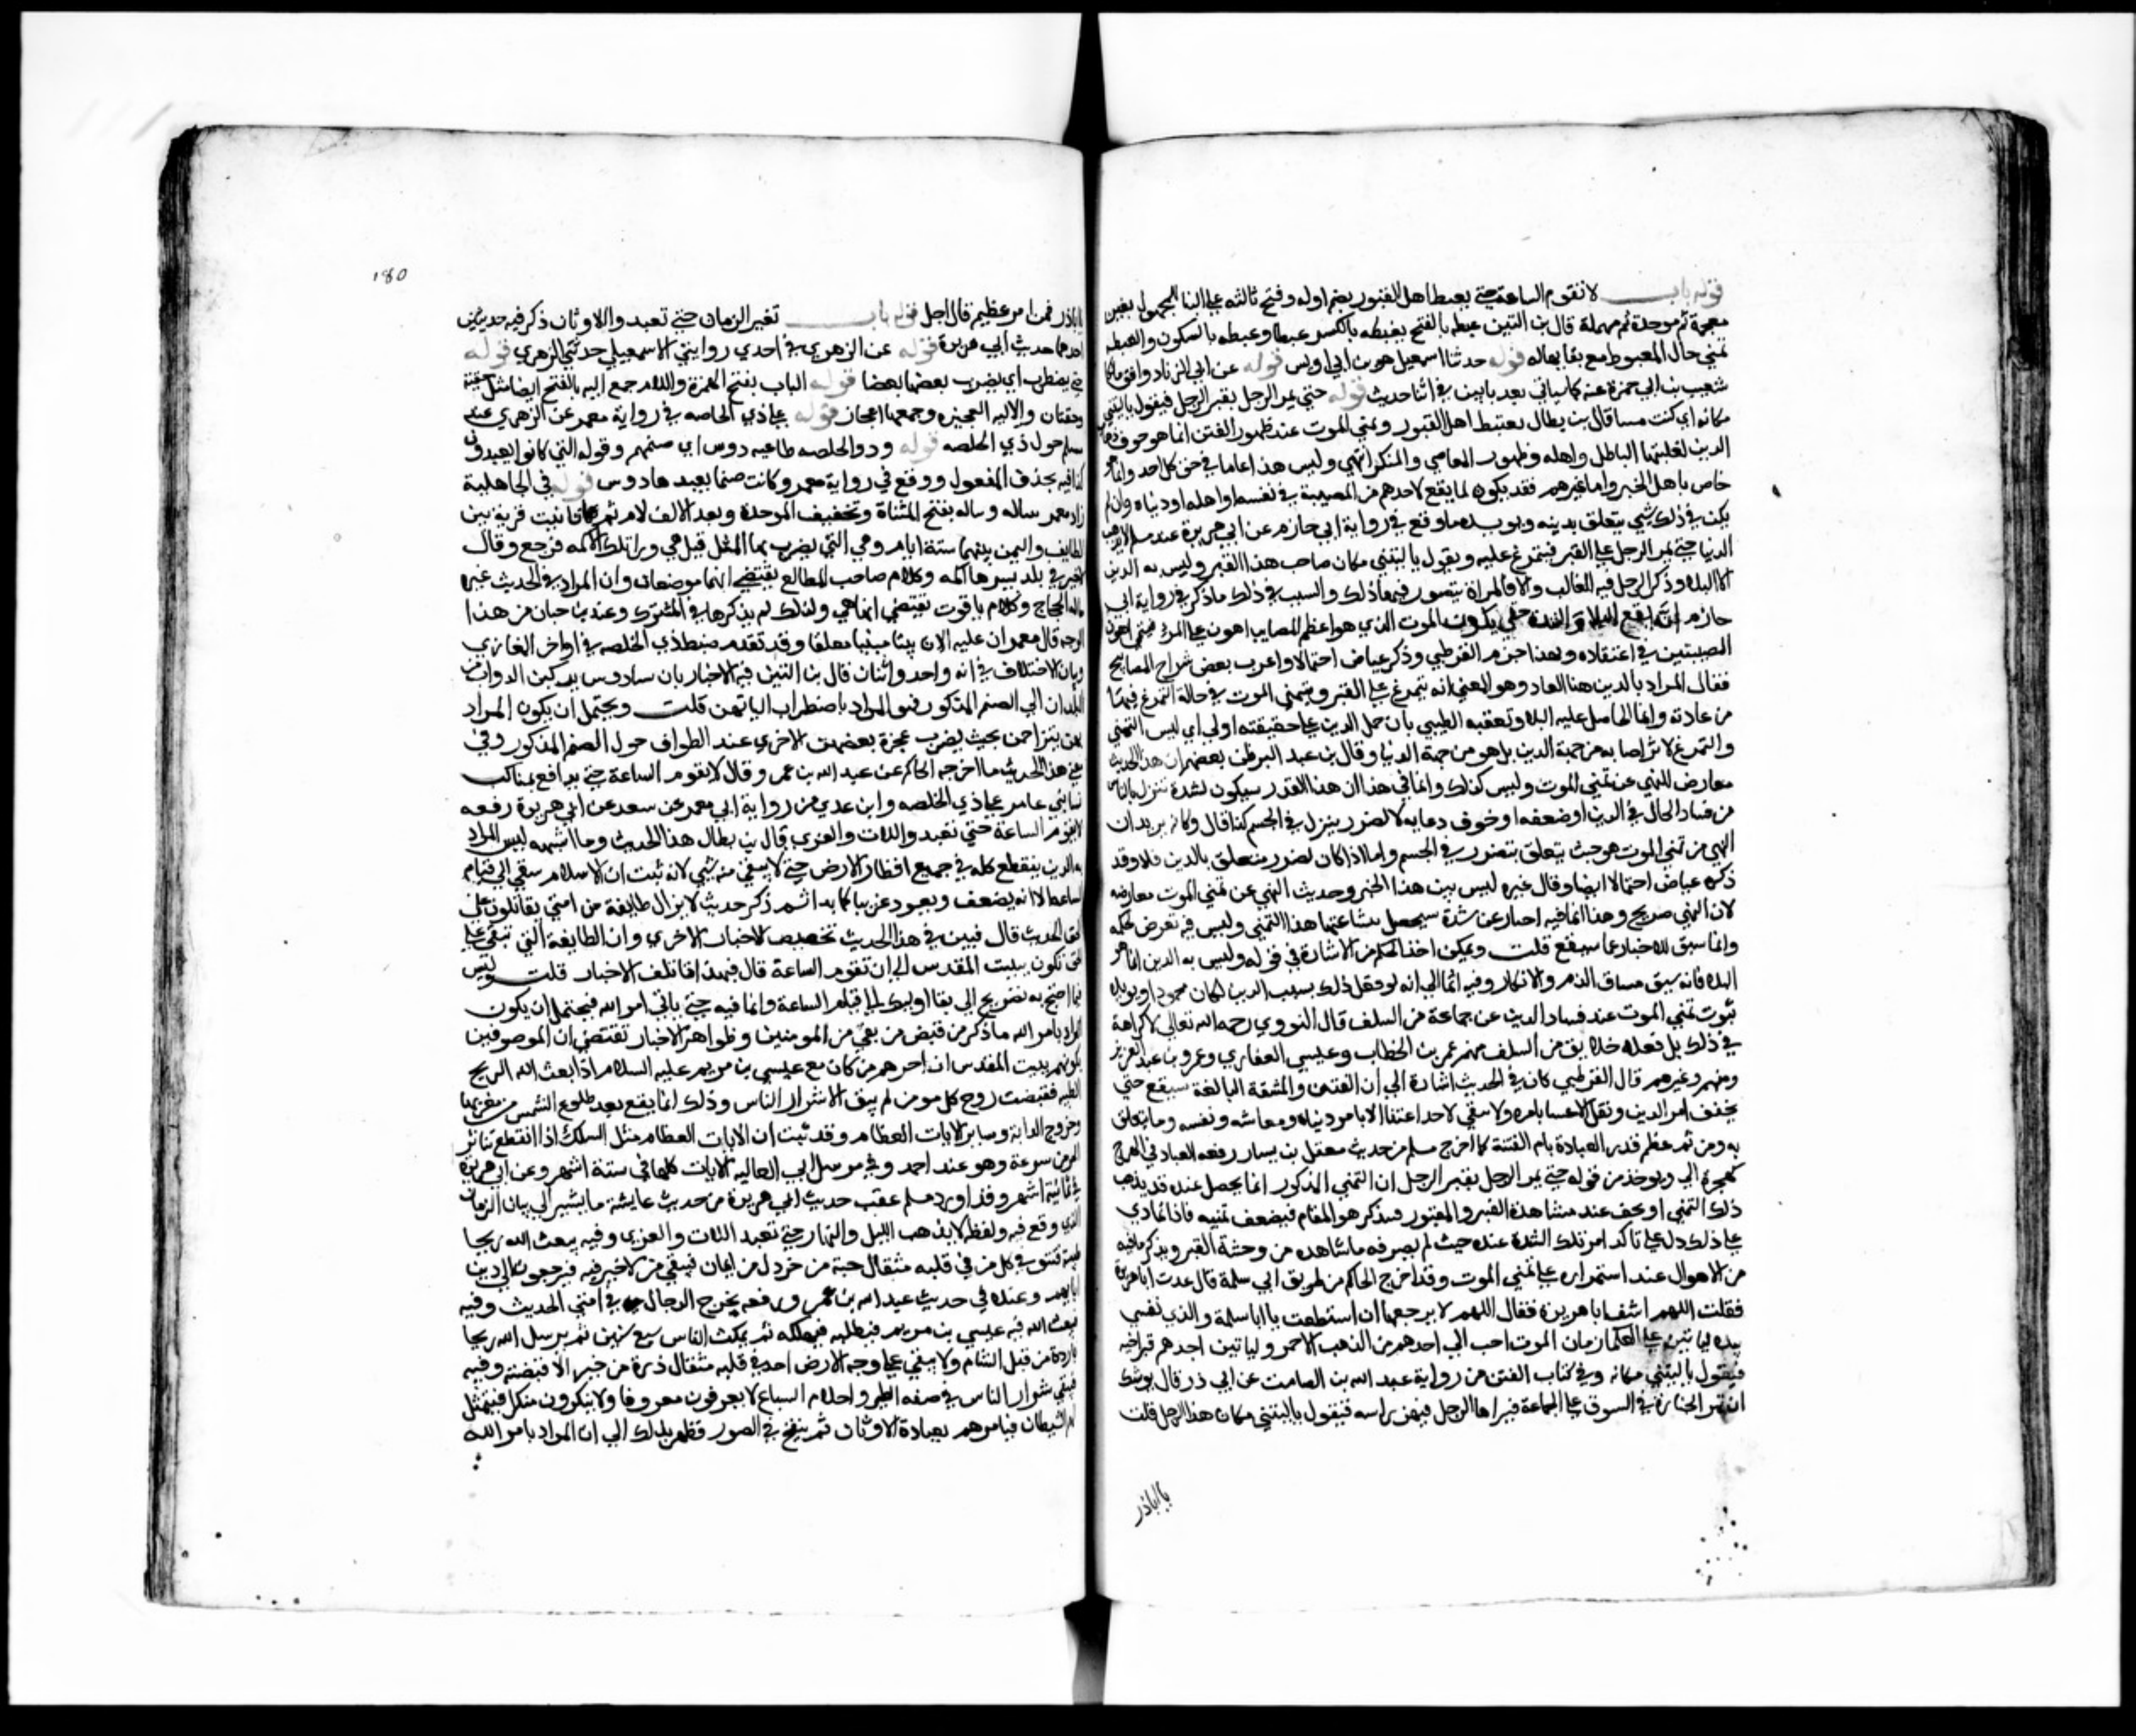 قوله باب لا تقوم الساعة حتي يغبط اهل القبور بضم اوله وفتح ثالثه علي البنا للمجهول بغين
معجمة ثم موحدة ثم مهملة قال بن التين غبطه بالفتح يغبطه بالكسر غبطا وغبطه بالسكون والغبطه
تمني حال المغبوط مع بقا حاله قوله حدثنا اسمعيل هو بن ابي اويس قوله عن ابي الزناد وافق مالكا
شعيب بن ابي حمزة عنه كما سياتي بعد بابين في اثنا حديث قوله حتي يمر الرجل بقبر الرجل فيقول يا ليتني
مكانه اي كنت ميتا قال بن بطال تغبط اهل القبور وتمني الموت عند ظهور الفتن انما هو خوف ذهاب
الدين لغلبة الباطل واهله وظهور المعاصي والمنكر انتهي وليس هذا عاما في حق كل احد وانما هو
خاص باهل الخير واما غيرهم فقد يكون لما يقع لاحدهم من المصيبة في نفسه او اهله او دنياه وان لم
يكن في ذلك شي يتعلق بدينه ويويده ما وقع في رواية ابي حازم عن ابي هريرة عند مسلم لا تذهب
الدنيا حتي يمر الرجل علي القبر فيتمرغ عليه ويقول يا ليتني مكان صاحب هذا القبر وليس به الدين
الا البلا وذكر الرجل فيه للغالب والا فالمراة يتصور فيها ذلك والسبب في ذلك ما ذكر في رواية ابي
حازم انه يقع البلا والشدة حتي يكون الموت الذي هو اعظم المصايب اهون علي المرء فيتمني اهون
المصيبتين في اعتقاده وبهذا جزم القرطبي وذكره عياض احتمالا واغرب بعض شراح المصابيح
فقال المراد بالدين هنا العادة والمعني انه يتمرغ علي القبر ويتمني الموت في حالة التمرغ فيها
من عادته وانما الحامل عليه البلا وتعقبه الطيبي بان حمل الدين علي حقيقته اولي اي ليس التمني
والتمرغ لامر اصابه من جهة الدين بل هو من جهة الدنيا وقال بن عبد البر ظن بعضهم ان هذا الحديث
معارض للنهي عن تمني الموت وليس كذلك وانما في هذا ان هذا القدر سيكون لشدة تنزل بالناس
من فساد الحال في الدين او ضعفه او خوف ذهابه لا لضرر ينزل في الجسم كذا قال وكانه يريد ان
النهي عن تمني الموت هو حيث يتعلق بضرر في الجسم واما اذا كان لضرر متعلق بالدين فلا وقد
ذكره عياض احتمالا ايضا وقال غيره ليس بين هذا الخبر وحديث النهي عن تمني الموت معارضه
لان النهي صريح وهذا انما فيه اخبار عن شدة سيحصل ينشا عنها هذا التمني وليس فيه تعرض لحكمه
وانما سيق للاخبار عما سيقع قلت ويمكن اخذ الحكم من الاشارة في قوله وليس به الدين انما هو
البلاء فانه سيق مساق الذم والانكار وفيه ايما الي انه لو فعل ذلك بسبب الدين لكان محمودا ويويده
ثبوت تمني الموت عند فساد الدين عن جماعة من السلف قال النووي رحمه الله تعالي لا كراهة
في ذلك بل فعله خلايق من السلف منهم عمر بن الخطاب وعيسي الغفاري وعمر بن عبد العزيز
ومنهم وغيرهم قال القرطبي كان في الحديث اشارة الي ان الفتن والمشقة البالغة ستقع حتي
يخف امر الدين ويقل الاعتنا بامره ولا يبقي لاحد اعتنا الا بامر دنياه ومعاشه ونفسه وما يتعلق
به ومن ثم عظم قدر العبادة ايام الفتنة كما اخرج مسلم من حديث معقل بن يسار رفعه العبادة في الهرج
كهجرة الي ويوخذ من قوله حتي يمر الرجل بقبر الرجل ان التمني المذكور انما يحصل عند
ذلك التمني او يخف عند مشاهدة القبر والمقبور فيتذكر هول المقام فيضعف تمنيه فاذا تمادي
علي ذلك دل علي تاكد امر تلك الشدة عنده حيث لم يصرفه ما شاهده من وحشة القبر وتذكر ما فيه
من الاهوال عند استمراره علي تمني الموت وقد اخرج الحاكم من طريق ابي سلمة قال عدت ابا هريرة
فقلت اللهم اشف ابا هريرة فقال اللهم لا ترجعها ان استطعت يا ابا سلمة والذي نفسي
بيده لياتين علي العلما زمان الموت احب الي احدهم من الذهب الاحمر ولياتين احدهم قبر اخيه
فيقول يا ليتني مكانه وفي كتاب الفتن من رواية عبد الله بن الصامت عن ابي ذر قال يوشك
ان تمر الجنازة في السوق علي الجماعة فيراها الرجل فيهز راسه فيقول يا ليتني مكان هذا الرجل قلت
يا ابا ذر
180
يا ابا ذر فمن امر عظيم قال اجل قوله باب تغير الزمان حتي تعبد والاوثان ذكر فيه حديثين
احدهما حديث ابي هريرة قوله عن الزهري في احدي روايتي الاسمعيلي حدثني الزهري قوله
حتي يضطرب اي يضرب بعضها بعضا قوله الباب بفتح الهمزة واللام جمع اليه بالفتح ايضا مثل جفنة
وجفنان والالية العجيزة وجمعها اعجاز قوله علي ذي الخلصه في رواية معمر عن الزهري عند
مسلم حول ذي الخلصه قوله وذو الخلصه طاغيه دوس اي صنمهم وقوله التي كانوا يعبدون
كذا فيه بحذف المفعول ووقع في رواية معمر وكانت صنما يعبدها دوس قوله في الجاهلية
زاد معمر بتباله وتباله بفتح المثناة وتخفيف الموحدة وبعد الالف لام ثم ها تانيث قرية بين
الطايف واليمن بينهما ستة ايام وهي التي يضرب بها المثل
وكلام صاحب المطالع يقتضي انهما موضعان وان المراد في الحديث غير
تباله الحجاج وكلام ياقوت يقتضي انها هي ولذلك لم يذكرها في المشترك وعند بن حبان من هذا
الوجه قال معمر ان عليه الان بيتا مبنيا مغلقا وقد تقدم ضبط ذي الخلصه في اواخر المغازي
وبيان الاختلاف في انه واحد او اثنان قال بن التين فيه الاخبار بان نسا دوس يركبن الدواب من
البلدان الي الصنم المذكور فهو المراد باضطراب الياتهن قلت ويحتمل ان يكون المراد
انهن يتزاحمن بحيث يضرب عجزة بعضهن الاخري عند الطواف حول الصنم المذكور وفي
معني هذا الحديث ما اخرجه الحاكم عن عبد الله بن عمر وقال لا تقوم الساعة حتي تدافع مناكب
نسا بني عامر علي ذي الخلصه وابن عدي من رواية ابي معمر عن سعيد عن ابي هريرة رفعه
لا تقوم الساعة حتي تعبد واللات والعزي قال بن بطال هذا الحديث وما اشبهه ليس المراد
به ان الدين ينقطع كله في جميع اقطار الارض حتي لا يبقي منه شي لانه ثبت ان الاسلام يبقي الي قيام
الساعة الا انه يضعف ويعود غريبا كما بدا ثم ذكر حديث لا يزال طايفة من امتي يقاتلون علي
الحق الحديث قال فبين في هذا الحديث تخصيص الاخبار الاخري وان الطايفة التي تبقي علي
الحق تكون ببيت المقدس الي ان تقوم الساعة قال فبهذا تاتلف الاخبار قلت وليس
فيما احتج به تصريح الي بقا اوليك الي قيام الساعة وانما فيه حتي ياتي امر الله فيحتمل ان يكون
المراد بامر الله ما ذكر من قبض من بقي من المومنين وظواهر الاخبار تقتضي ان الموصوفين
بكونهم ببيت المقدس ان اخرهم من كان مع عيسي بن مريم عليه السلام اذا بعث الله الريح
الطيبه فقبضت روح كل مومن لم يبق الا شرار الناس وذلك انما يقع بعد طلوع الشمس من مغربها
وخروج الدابة وساير الايات العظام وقد ثبت ان الايات العظام مثل السلك اذا انقطع تناثر
الخرز بسرعة وهو عند احمد وفي مرسل ابي العاليه الايات كلها في ستة اشهر وعن ابي هريرة
في ثمانية اشهر وقد اورد مسلم عقب حديث ابي هريرة من حديث عايشة ما يشير الي بيان الزمان
الذي وقع فيه ولفظه لا يذهب الليل والنهار حتي تعبد اللات والعزي وفيه يبعث الله ريحا
طيبة فتتوفي كل من في قلبه مثقال حبة من خردل من ايمان فيبقي من لا خير فيه فيرجعون الي دين
ابايهم وعنده في حديث عبد الله بن عمر ورفعه يخرج الدجال في امتي الحديث وفيه
فيبعث الله فيه عيسي بن مريم فيطلبه فيهلكه ثم يمكث الناس سبع سنين ثم يرسل الله ريحا
باردة من قبل الشام ولا يبقي علي وجه الارض احد في قلبه مثقال ذرة من خير الا قبضته وفيه
فيبقي شرار الناس في صفه الطير واحلام السباع لا يعرفون معروفا ولا ينكرون منكرا فيتمثل
لهم الشيطان فيامرهم بعبادة الاوثان ثم ينفخ في الصور فظهر بذلك الي ان المراد بامر الله